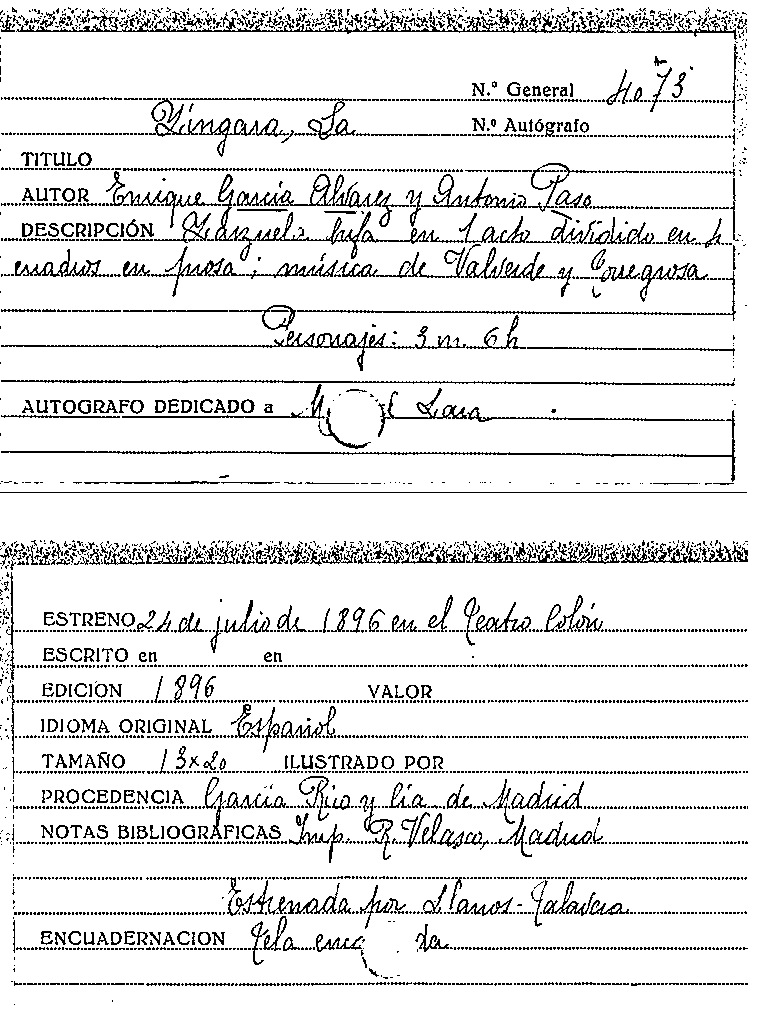 N.º General 4073
Zíngara, La N.º Autógrafo
TITULO
AUTOR Enrique García Alvarez y Antonio Paso
DESCRIPCIÓN Zarzuela lírica en 1 acto dividido en 4
cuadros en prosa; música de Valverde y Torregrosa
Personajes: 3 m. 6 h
AUTOGRAFO DEDICADO a Lara
ESTRENO 24 de julio de 1896 en el Teatro Colón
ESCRITO en en
EDICION 1896 VALOR
IDIOMA ORIGINAL Español
TAMAÑO 13x20 ILUSTRADO POR
PROCEDENCIA García Rico y Cía de Madrid
NOTAS BIBLIOGRAFICAS Imp. R. Velasco, Madrid
Estrenada por Llanos-Talavera
ENCUADERNACION Tela